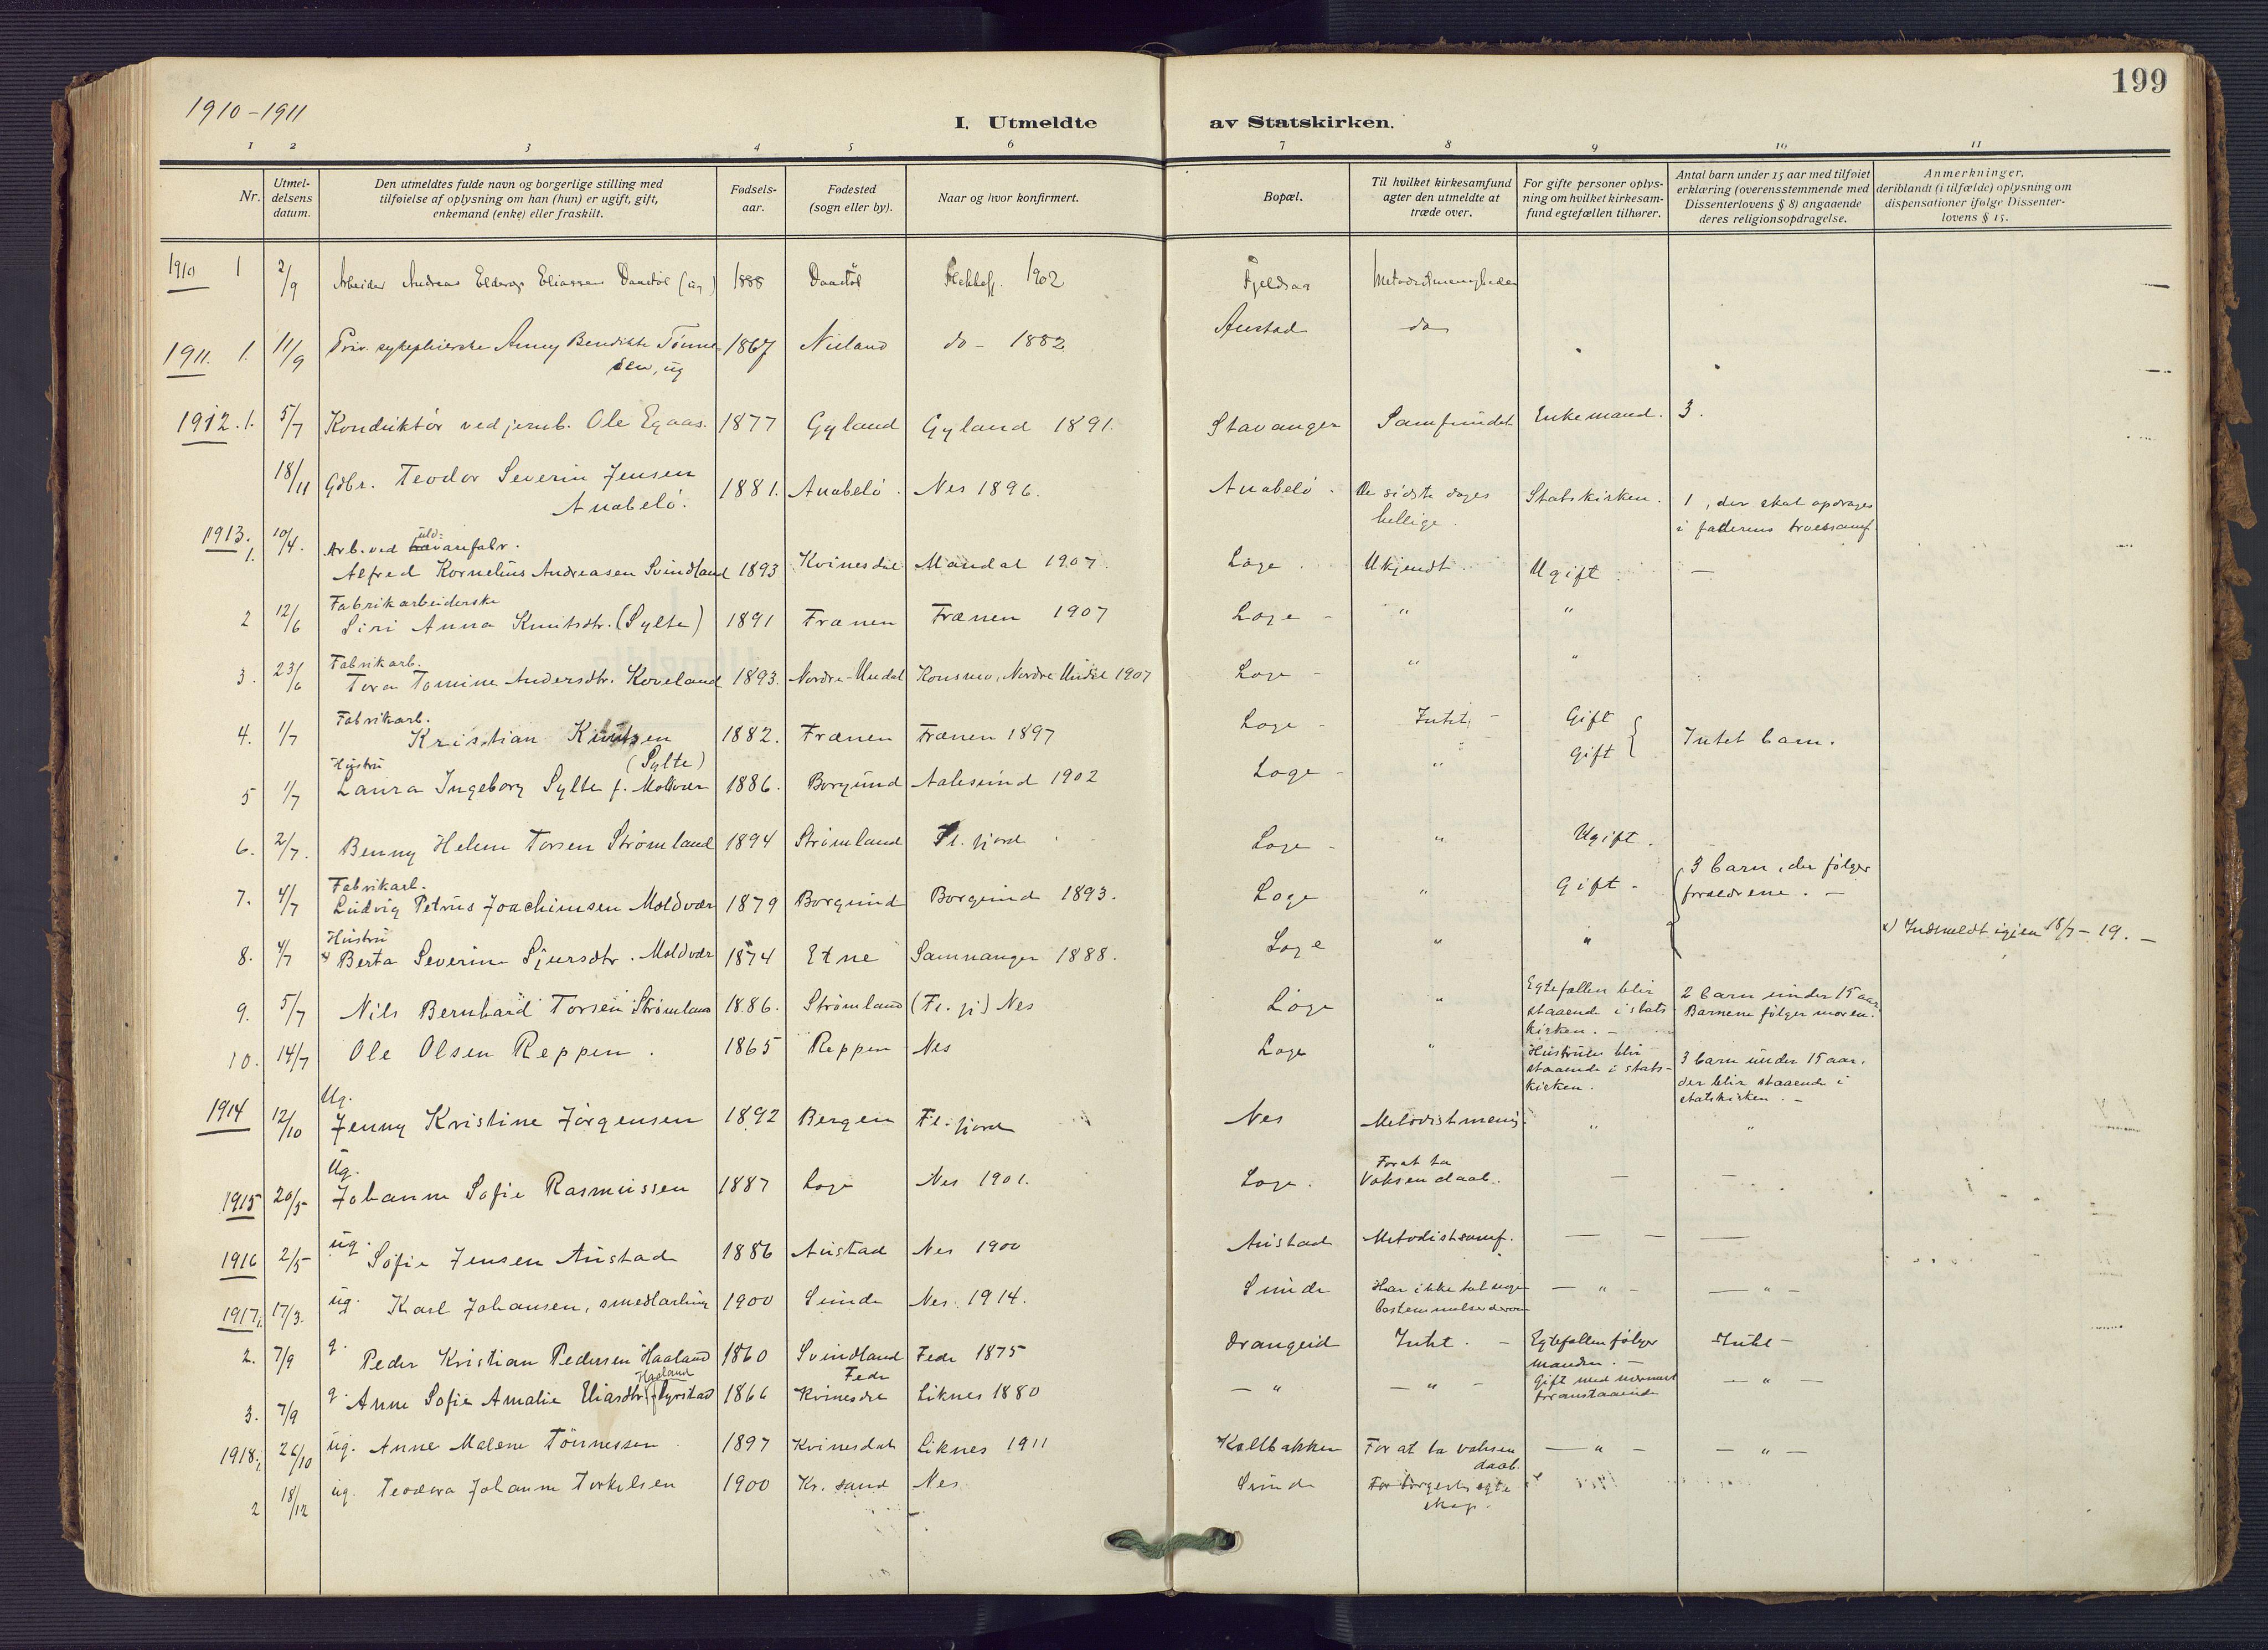 199
1910-1911
I. Utmeldte av Statskirken.
1 2 3 4 5 6 7 8 9 10 11
Nr.
Utmel-
delsens
datum.
Den utmeldtes fulde navn og borgerlige stilling med
tilføielse af oplysning om han (hun) er ugift, gift,
enkemand (enke) eller fraskilt.
Fødsels-
aar.
Fødested
(sogn eller by).
Naar og hvor konfirmert.
Bopæl.
Til hvilket kirkesamfund
agter den utmeldte at
træde over.
For gifte personer oplys-
ning om hvilket kirkesam-
fund egtefællen tilhører.
Antal barn under 15 aar med tilføiet
erklæring (overensstemmende med
Dissenterlovens § 8) angaaende
deres religionsopdragelse.
Anmerkninger,
deriblandt (i tilfælde) oplysning om
dispensationer ifølge Dissenter-
lovens § 15.
1910 1 2/9 Arbeider Andreas Eliassen Daastøl (ug) 1888 Daastøl Flekkefj. 1902 Fjeldsaa Metodistmenigheden
1911. 1. 11/9 Priv. sykepleierske Anny Bendikte Tønne- 1867 Nuland do - 1882 Austad do
sen, ug
1912. 1. 5/7 Konduktør ved jernb. Ole Egaas. 1877 Gyland Gyland 1891. Stavanger Samfundet Enkemand. 3.
18/11 Gdbr. Teodor Severin Jensen 1881. Anabelø. Nes 1896. Anabelø - De sidste dages Statskirken. 1, der skal opdrages
Anabelø. hellige. i faderens troessamf.
1913. 10/4. Arb. ved uld-varefabr.
1. Alfred Kornelius Andreasen Svindland 1893 Kvinesdal Mandal 1907. Loge. Ukjendt. Ugift. —
Fabrikarbeiderske
2 12/6 Siri Anna Knutsdtr. (Sylte) 1891 Frænen Frænen 1907 Loge - " "
Fabrikarb.
3. 23/6 Tora Tomine Andersdtr. Koveland 1893. Nordre-Undal Konsmo, Nordre Undal 1907 Loge - " "
Fabrikarb.
4. 1/7 Kristian Knutsen 1882. Frænen Frænen 1897 Loge - Intet. - Gift Intet barn.
Hustru (Sylte)
5 1/7 Laura Ingeborg Sylte f. Moldvær 1886. Borgund Aalesund 1902 Loge - " Gift
6. 2/7. Benny Helene Torsen Strømland 1894 Strømland Fl. fjord Loge - " Ugift.
Fabrikarb. 3 barn, der følger
7. 4/7 Ludvig Petrus Joachimsen Moldvær 1879 Borgund Borgund 1893. Loge " Gift - forældrene. -
Hustru
8. 4/7 x) Berta Severine Sjursdtr. Moldvær 1874 Etne Samnanger 1888. Loge " " x) Indmeldt igjen 18/7-19. -
9. 5/7 Nils Bernhard Torsen Strømland 1886. Strømland (Fl. fj) Nes Loge " Egtefællen blir 2 barn under 15 aar
staaende i stats- Barnene følger moren.
kirken. -
10. 14/7 Ole Olsen Reppen. 1865 Reppen Nes Loge " Hustruen blir 3 barn under 15 aar.
staaende i stats- der blir staaende i
kirken. statskirken. -
Ug.
1914 12/10 Jenny Kristine Jørgensen 1892 Bergen Fl. fjord Nes Metodistmenig. " "
Ug. For at ta
1915 20/5 Johanne Sofie Rasmussen 1887 Loge Nes 1901. Loge. Voksendaab. — —
1916 2/5 ug. Sofie Jensen Austad 1886 Austad Nes 1900 Austad Metodistsamf. — — —
1917, 17/3. ug. Karl Johansen, smedlærling 1900 Sunde Nes. 1914. Sunde Har ikke tat nogen — " - — " -
bestemmelse derom
2. 7/9 g. Peder Kristian Pedersen Haaland 1860 Svindland Fede 1875 Drangeid Intet. - Egtefællen følger Intet -
Fede manden. -
Haaland
3. 7/9 g. Anne Sofie Amalie Eliasdtr. f. Øyrstad 1866 Kvinesdal Liknes 1880 — " — " - Gift med nærmest — " —
foranstaaende
1918, 26/10 ug. Anne Malene Tønnessen 1897 Kvinesdal Liknes 1911 Kallbakken For at ta voksen — " - — " —
daab.
2 18/12 ug. Teodora Johanne Torkelsen 1900 Kr. sand Nes Sunde For borgerlig egte
skap.